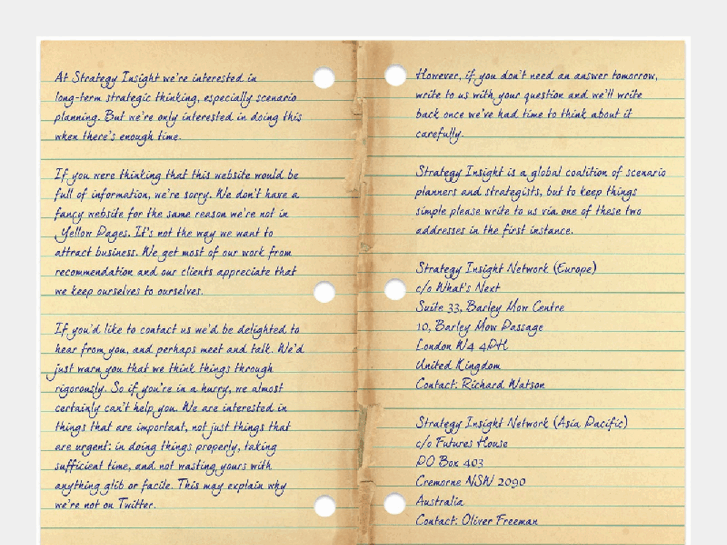 At Strategy Insight we're interested in
long-term strategic thinking, especially scenario
planning. But we're only interested in doing this
when there's enough time.
If you were thinking that this website would be
full of information, we're sorry. We don't have a
fancy website for the same reason we're not in
Yellow Pages. It's not the way we want to
attract business. We get most of our work from
recommendation and our clients appreciate that
we keep ourselves to ourselves.
If you'd like to contact us we'd be delighted to
hear from you, and perhaps meet and talk. We'd
just warn you that we think things through
rigorously. So if you're in a hurry, we almost
certainly can't help you. We are interested in
things that are important, not just things that
are urgent: in doing things properly, taking
sufficient time, and not wasting yours with
anything glib or facile. This may explain why
we're not on Twitter.
However, if you don't need an answer tomorrow,
write to us with your question and we'll write
back once we've had time to think about it
carefully.
Strategy Insight is a global coalition of scenario
planners and strategists, but to keep things
simple please write to us via one of these two
addresses in the first instance.
Strategy Insight Network (Europe)
c/o What's Next
Suite 33, Barley Mow Centre
10, Barley Mow Passage
London W4 4PH
United Kingdom
Contact: Richard Watson
Strategy Insight Network (Asia Pacific)
c/o Futures House
PO Box 403
Cremorne NSW 2090
Australia
Contact: Oliver Freeman